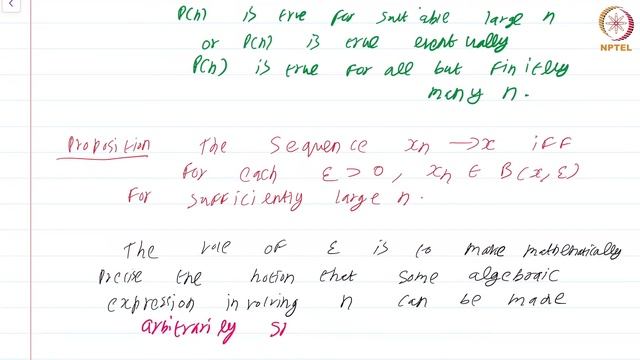 P(n) is true for suitable large n
or P(n) is true eventually
P(n) is true for all but finitely
many n.
NPTEL
Proposition The sequence xn → x iff
for each ε > 0, xn ∈ B(x, ε)
for sufficiently large n.
The role of ε is to make mathematically
precise the notion that some algebraic
expression involving n can be made
arbitrarily